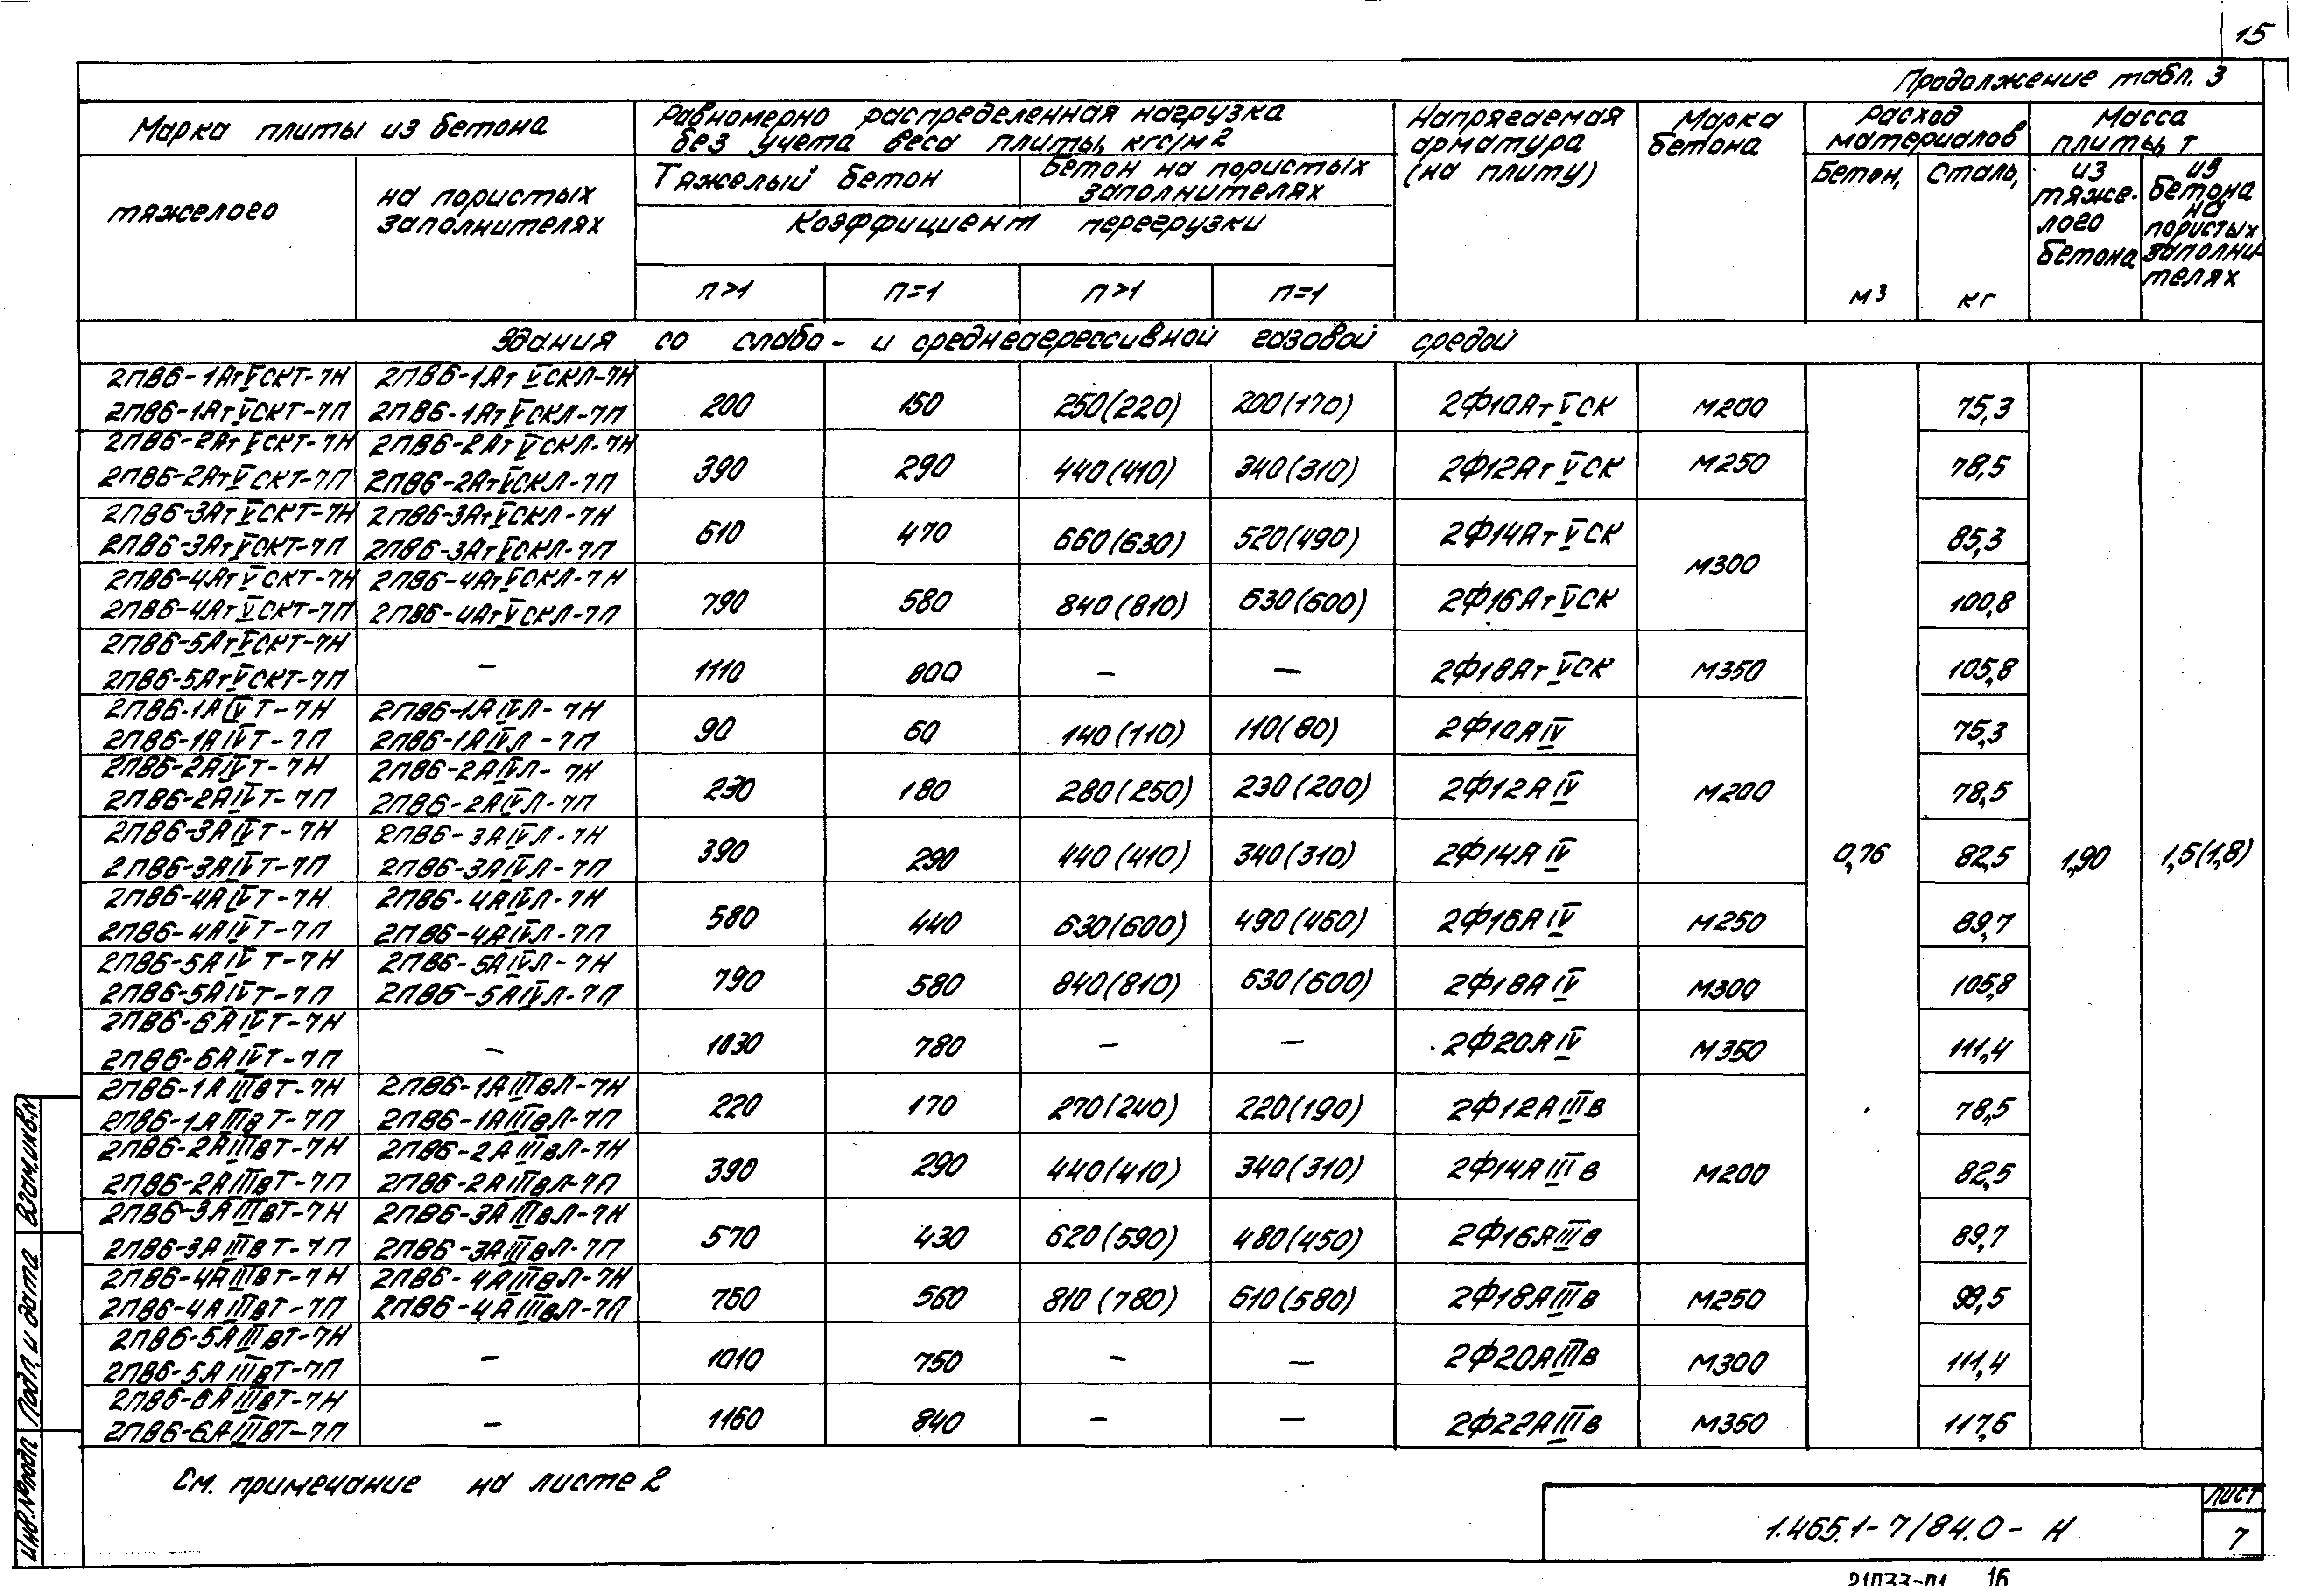 15
Продолжение табл. 3
Марка плиты из бетона | Равномерно распределенная нагрузка без учета веса плиты, кгс/м2 | Напрягаемая арматура (на плиту) | Марка бетона | Расход материалов | Масса плиты, т
тяжелого | на пористых заполнителях | Тяжелый бетон | Бетон на пористых заполнителях | Бетон, м3 | Сталь, кг | из тяже-лого бетона | из бетона на пористых заполни-телях
Коэффициент перегрузки
п>1 | п=1 | п>1 | п=1
Здания со слабо- и среднеагрессивной газовой средой
2ПВ6-1АтVСКТ-7Н | 2ПВ6-1АтVСКЛ-7Н
2ПВ6-1АтVСКТ-7П | 2ПВ6-1АтVСКЛ-7П | 200 | 150 | 250(220) | 200(170) | 2Ф10АтVСК | М200 | 75,3
2ПВ6-2АтVСКТ-7Н | 2ПВ6-2АтVСКЛ-7Н
2ПВ6-2АтVСКТ-7П | 2ПВ6-2АтVСКЛ-7П | 390 | 290 | 440(410) | 340(310) | 2Ф12АтVСК | М250 | 78,5
2ПВ6-3АтVСКТ-7Н | 2ПВ6-3АтVСКЛ-7Н
2ПВ6-3АтVСКТ-7П | 2ПВ6-3АтVСКЛ-7П | 610 | 470 | 660(630) | 520(490) | 2Ф14АтVСК | М300 | 85,3
2ПВ6-4АтVСКТ-7Н | 2ПВ6-4АтVСКЛ-7Н
2ПВ6-4АтVСКТ-7П | 2ПВ6-4АтVСКЛ-7П | 790 | 580 | 840(810) | 630(600) | 2Ф16АтVСК | 100,8
2ПВ6-5АтVСКТ-7Н
2ПВ6-5АтVСКТ-7П | - | 1110 | 800 | - | - | 2Ф18АтVСК | М350 | 105,8
2ПВ6-1АIVТ-7Н | 2ПВ6-1АIVЛ-7Н
2ПВ6-1АIVТ-7П | 2ПВ6-1АIVЛ-7П | 90 | 60 | 140(110) | 110(80) | 2Ф10АIV | 75,3
2ПВ6-2АIVТ-7Н | 2ПВ6-2АIVЛ-7Н
2ПВ6-2АIVТ-7П | 2ПВ6-2АIVЛ-7П | 230 | 180 | 280(250) | 230(200) | 2Ф12АIV | М200 | 78,5
2ПВ6-3АIVТ-7Н | 2ПВ6-3АIVЛ-7Н
2ПВ6-3АIVТ-7П | 2ПВ6-3АIVЛ-7П | 390 | 290 | 440(410) | 340(310) | 2Ф14АIV | 0,76 | 82,5 | 1,90 | 1,5(1,8)
2ПВ6-4АIVТ-7Н | 2ПВ6-4АIVЛ-7Н
2ПВ6-4АIVТ-7П | 2ПВ6-4АIVЛ-7П | 580 | 440 | 630(600) | 490(460) | 2Ф16АIV | М250 | 89,7
2ПВ6-5АIVТ-7Н | 2ПВ6-5АIVЛ-7Н
2ПВ6-5АIVТ-7П | 2ПВ6-5АIVЛ-7П | 790 | 580 | 840(810) | 630(600) | 2Ф18АIV | М300 | 105,8
2ПВ6-6АIVТ-7Н
2ПВ6-6АIVТ-7П | - | 1030 | 780 | - | - | 2Ф20АIV | М350 | 111,4
2ПВ6-1АIIIвТ-7Н | 2ПВ6-1АIIIвЛ-7Н
2ПВ6-1АIIIвТ-7П | 2ПВ6-1АIIIвЛ-7П | 220 | 170 | 270(240) | 220(190) | 2Ф12АIIIв | 78,5
2ПВ6-2АIIIвТ-7Н | 2ПВ6-2АIIIвЛ-7Н
2ПВ6-2АIIIвТ-7П | 2ПВ6-2АIIIвЛ-7П | 390 | 290 | 440(410) | 340(310) | 2Ф14АIIIв | М200 | 82,5
2ПВ6-3АIIIвТ-7Н | 2ПВ6-3АIIIвЛ-7Н
2ПВ6-3АIIIвТ-7П | 2ПВ6-3АIIIвЛ-7П | 570 | 430 | 620(590) | 480(450) | 2Ф16АIIIв | 89,7
2ПВ6-4АIIIвТ-7Н | 2ПВ6-4АIIIвЛ-7Н
2ПВ6-4АIIIвТ-7П | 2ПВ6-4АIIIвЛ-7П | 760 | 560 | 810(780) | 610(580) | 2Ф18АIIIв | М250 | 99,5
2ПВ6-5АIIIвТ-7Н
2ПВ6-5АIIIвТ-7П | - | 1010 | 750 | - | - | 2Ф20АIIIв | М300 | 111,4
2ПВ6-6АIIIвТ-7Н
2ПВ6-6АIIIвТ-7П | - | 1160 | 840 | - | - | 2Ф22АIIIв | М350 | 117,6
См. примечание на листе 2
Инв.№подл | Подп. и дата | Взам.инв.N
1.465.1-7/84.0-Н
Лист
7
16